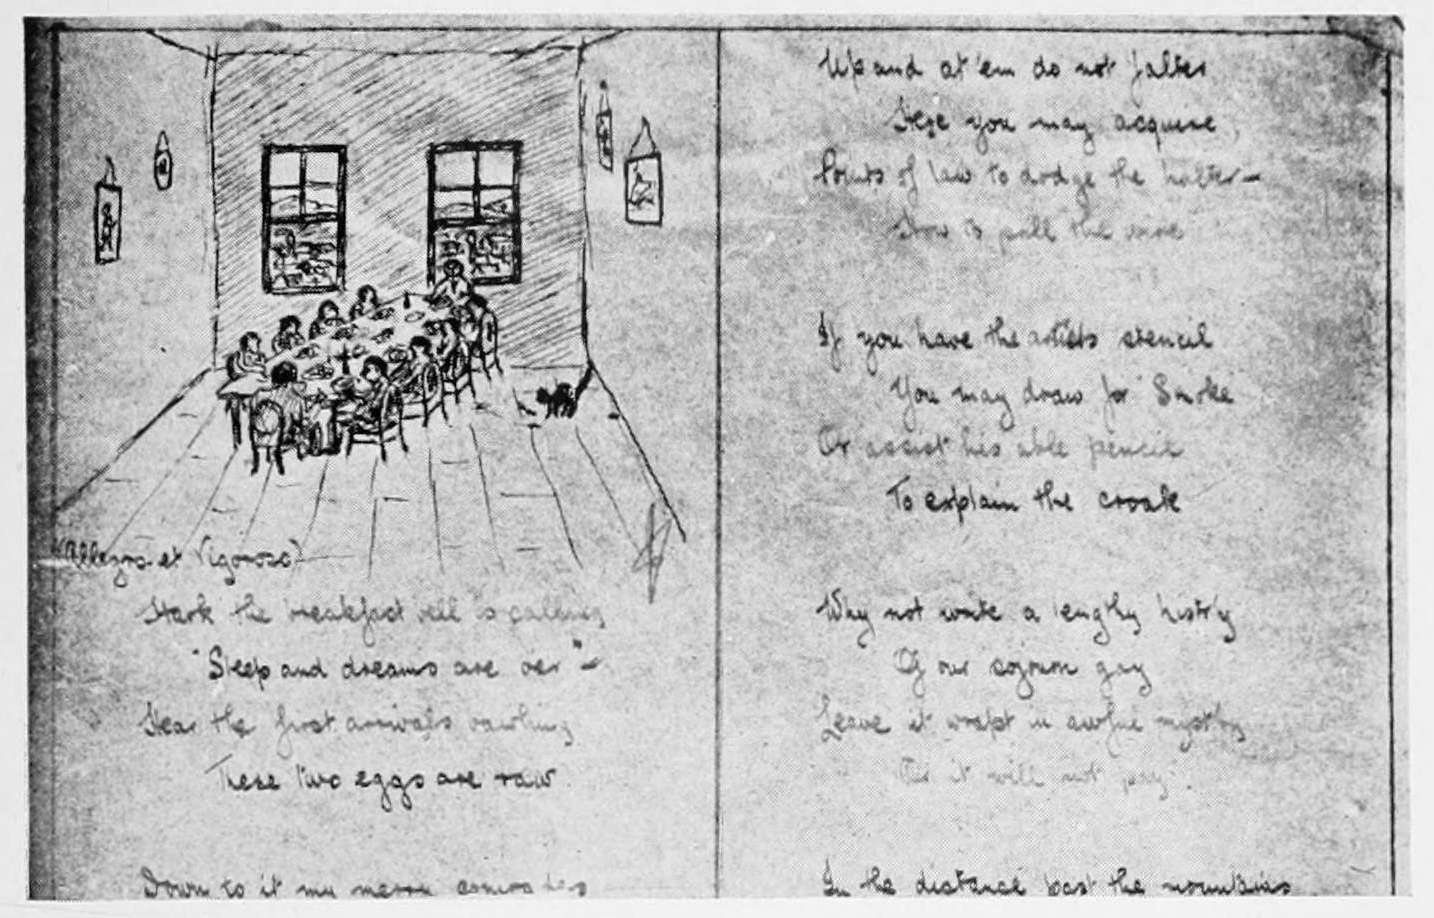 (Allegro et Vigoroso)
Hark the breakfast bell is calling
"Sleep and dreams are oer"—
Hear the first arrivals bawling
These two eggs are raw
Down to it my merry comrades
Up and at 'em do not falter
Here you may acquire,
Points of law to dodge the halter—
How to pull the wire
If you have the artists stencil
You may draw for Smoke
Or assist his able pencil
To explain the croak
Why not write a lengthy hist'ry
Of our sojourn gay
Leave it wrapt in awful myst'ry
it will not pay.
In the distance past the mountains